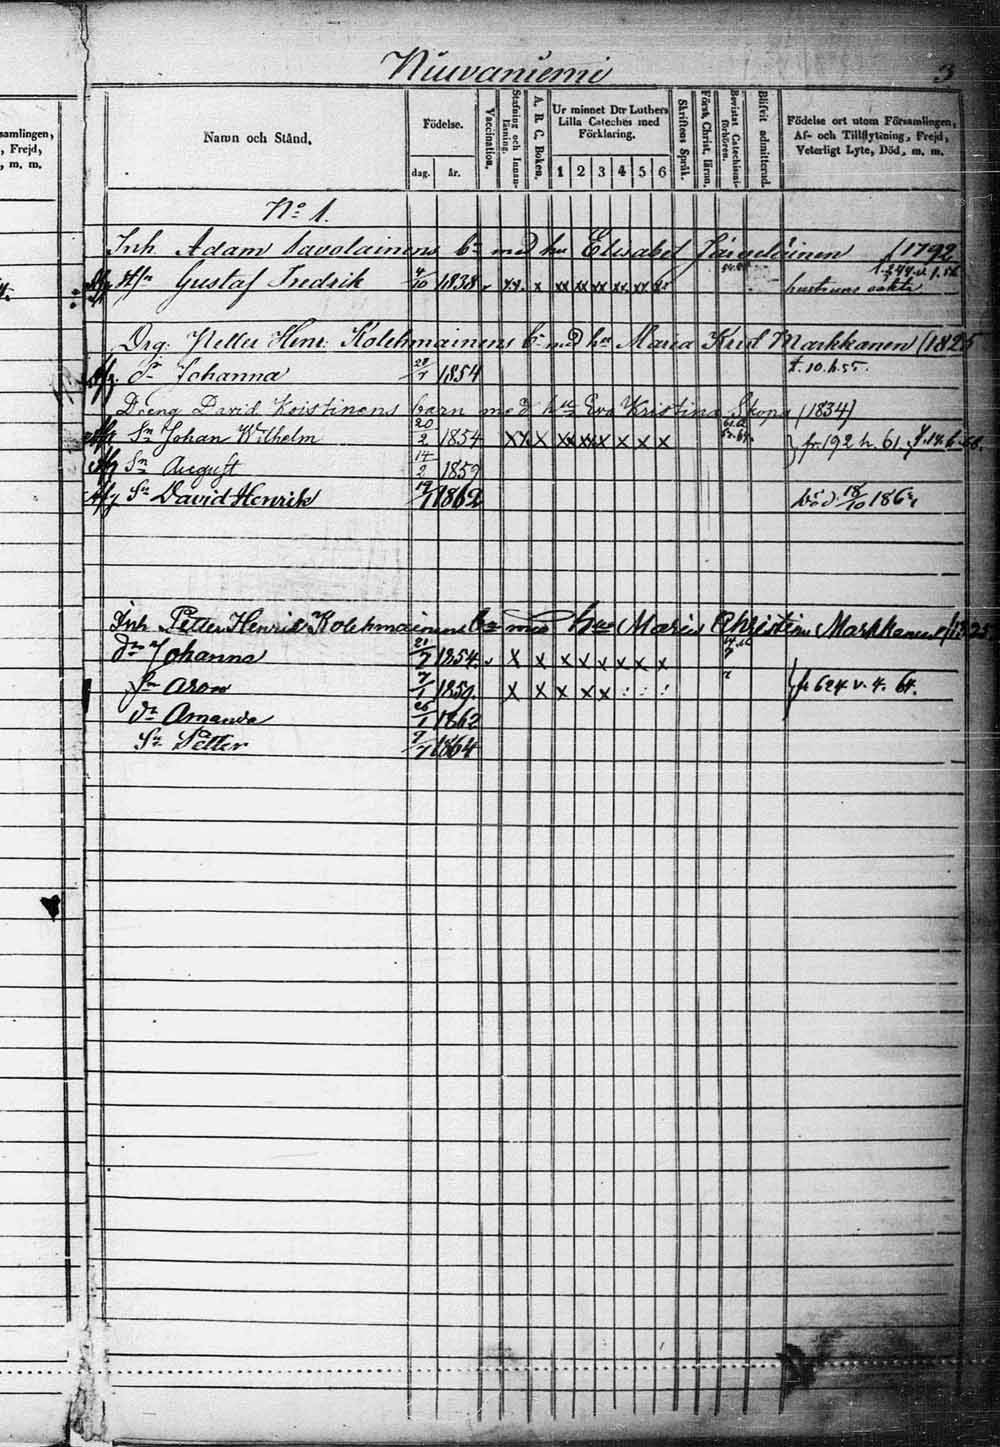 Niuvaniemi 3
samlingen,
, Frejd,
, m. m.
Namn och Stånd.
Födelse.
dag. år.
Vaccination.
Stafning och Innan-läsning.
A. B. C. Boken.
Ur minnet D:r Luthers
Lilla Cateches med
Förklaring.
1 2 3 4 5 6
Skriftens Språk.
Först. Christ. läran.
Bevistat Catechismi-förhören.
Blifvit admitterad.
Födelse ort utom Församlingen,
Af- och Tillflyttning, Frejd,
Veterligt Lyte, Död, m. m.
No 1.
Inh. Adam Savolainens bn med hu Elisabet (1792
Gustaf Fredrik 4/10 1838 xx x xx xx xx xx xx
hustruns
Drg: Petter Henr: Kolehmainens bn med hu Maria Krist Markkanen (1825
Afg. dr Johanna 21/7 1854 t. 10. h. 55.
Dreng David Koistinens barn med hu Eva Kristina Skopa (1834)
Afg Sn Johan Wilhelm 20/2 1854 xx x xx xx x x x x fr. 192 h. 61.
Afg Sn August 14/2 1859
Afg Sn David Henrik 1862 död 18/10 186
Inh Petter Henrik Kolehmainens bn med hu Maria Christina Markkanen (1825
dr Johanna 21/7 1854 x x x x x x x x
Sn Aron 7/1 1859. x x x x x : : : fr 624 v. 4. 64.
dr Amanda 26/1 1862
Sn Petter 9/7 1864